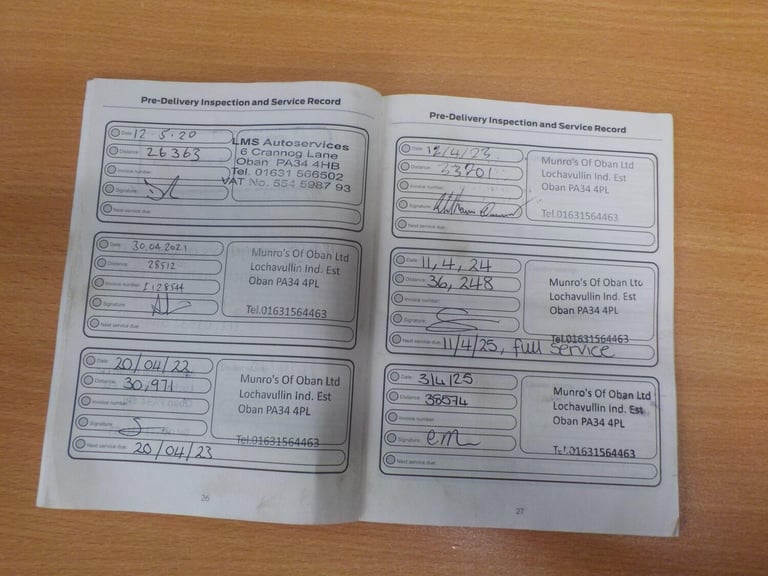 Pre-Delivery Inspection and Service Record
Date: 12-5-20
Distance: 26363
Invoice number:
Signature:
Next service due:
LMS Autoservices
6 Crannog Lane
Oban PA34 4HB
Tel. 01631 566502
VAT No. 554 5987 93
Date: 30.04.2021
Distance: 28512
Invoice number:
Signature:
Next service due:
Munro's Of Oban Ltd
Lochavullin Ind. Est
Oban PA34 4PL
Tel.01631564463
Date: 20/04/22
Distance: 30,971
Invoice number:
Signature:
Next service due: 20/04/23
Munro's Of Oban Ltd
Lochavullin Ind. Est
Oban PA34 4PL
Tel.01631564463
26
Pre-Delivery Inspection and Service Record
Date: 12/4/23
Distance: 33701
Invoice number:
Signature:
Next service due:
Munro's Of Oban Ltd
Lochavullin Ind. Est
Oban PA34 4PL
Tel.01631564463
Date: 11,4,24
Distance: 36,248
Invoice number:
Signature:
Next service due: 11/4/25, full service
Munro's Of Oban Ltd
Lochavullin Ind. Est
Oban PA34 4PL
Tel.01631564463
Date: 3/4/25
Distance: 38574
Invoice number:
Signature:
Next service due:
Munro's Of Oban Ltd
Lochavullin Ind. Est
Oban PA34 4PL
Tel.01631564463
27